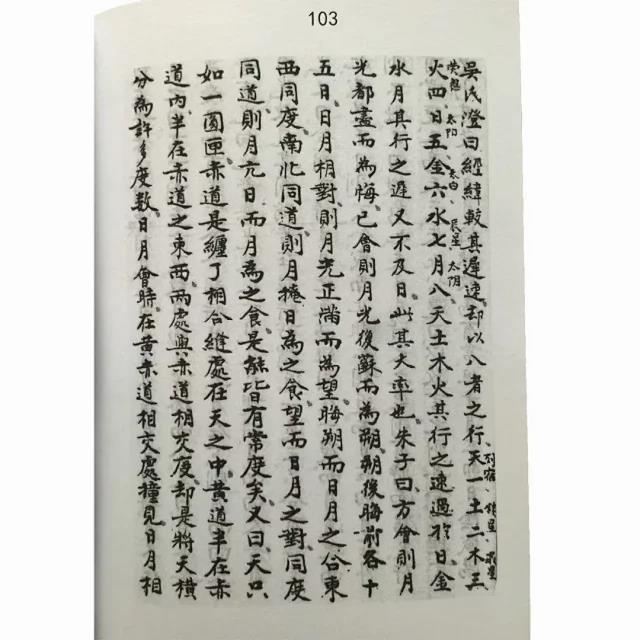 103
吳氏澄曰經緯較其遲速、却以八者之行天一土二木三
列宿、鎮星、歲星
火四日五金六水七月八天土木火其行之速過於日金
熒惑、太阳、太白、辰星、太阴
水月其行之遲又不及日、此其大率也、朱子曰方會則月
光都盡而為悔、已會則月光後蘇而為朔、朔後晦前各十
五日日月相對、則月光正滿而為望、晦朔而日月之合東
西同度、南北同道則月掩日為之食、望而日月之對同度
同道、則月亢日而月為之食、是能皆有常度矣、又曰、天只
如一圓匣赤道是纏了相合縫處在天之中、黃道半在赤
道內、半在赤道之東西、兩處與赤道相交度却是將天橫
分為許多度數、日月會時、在黃赤道相交處撞見日月相